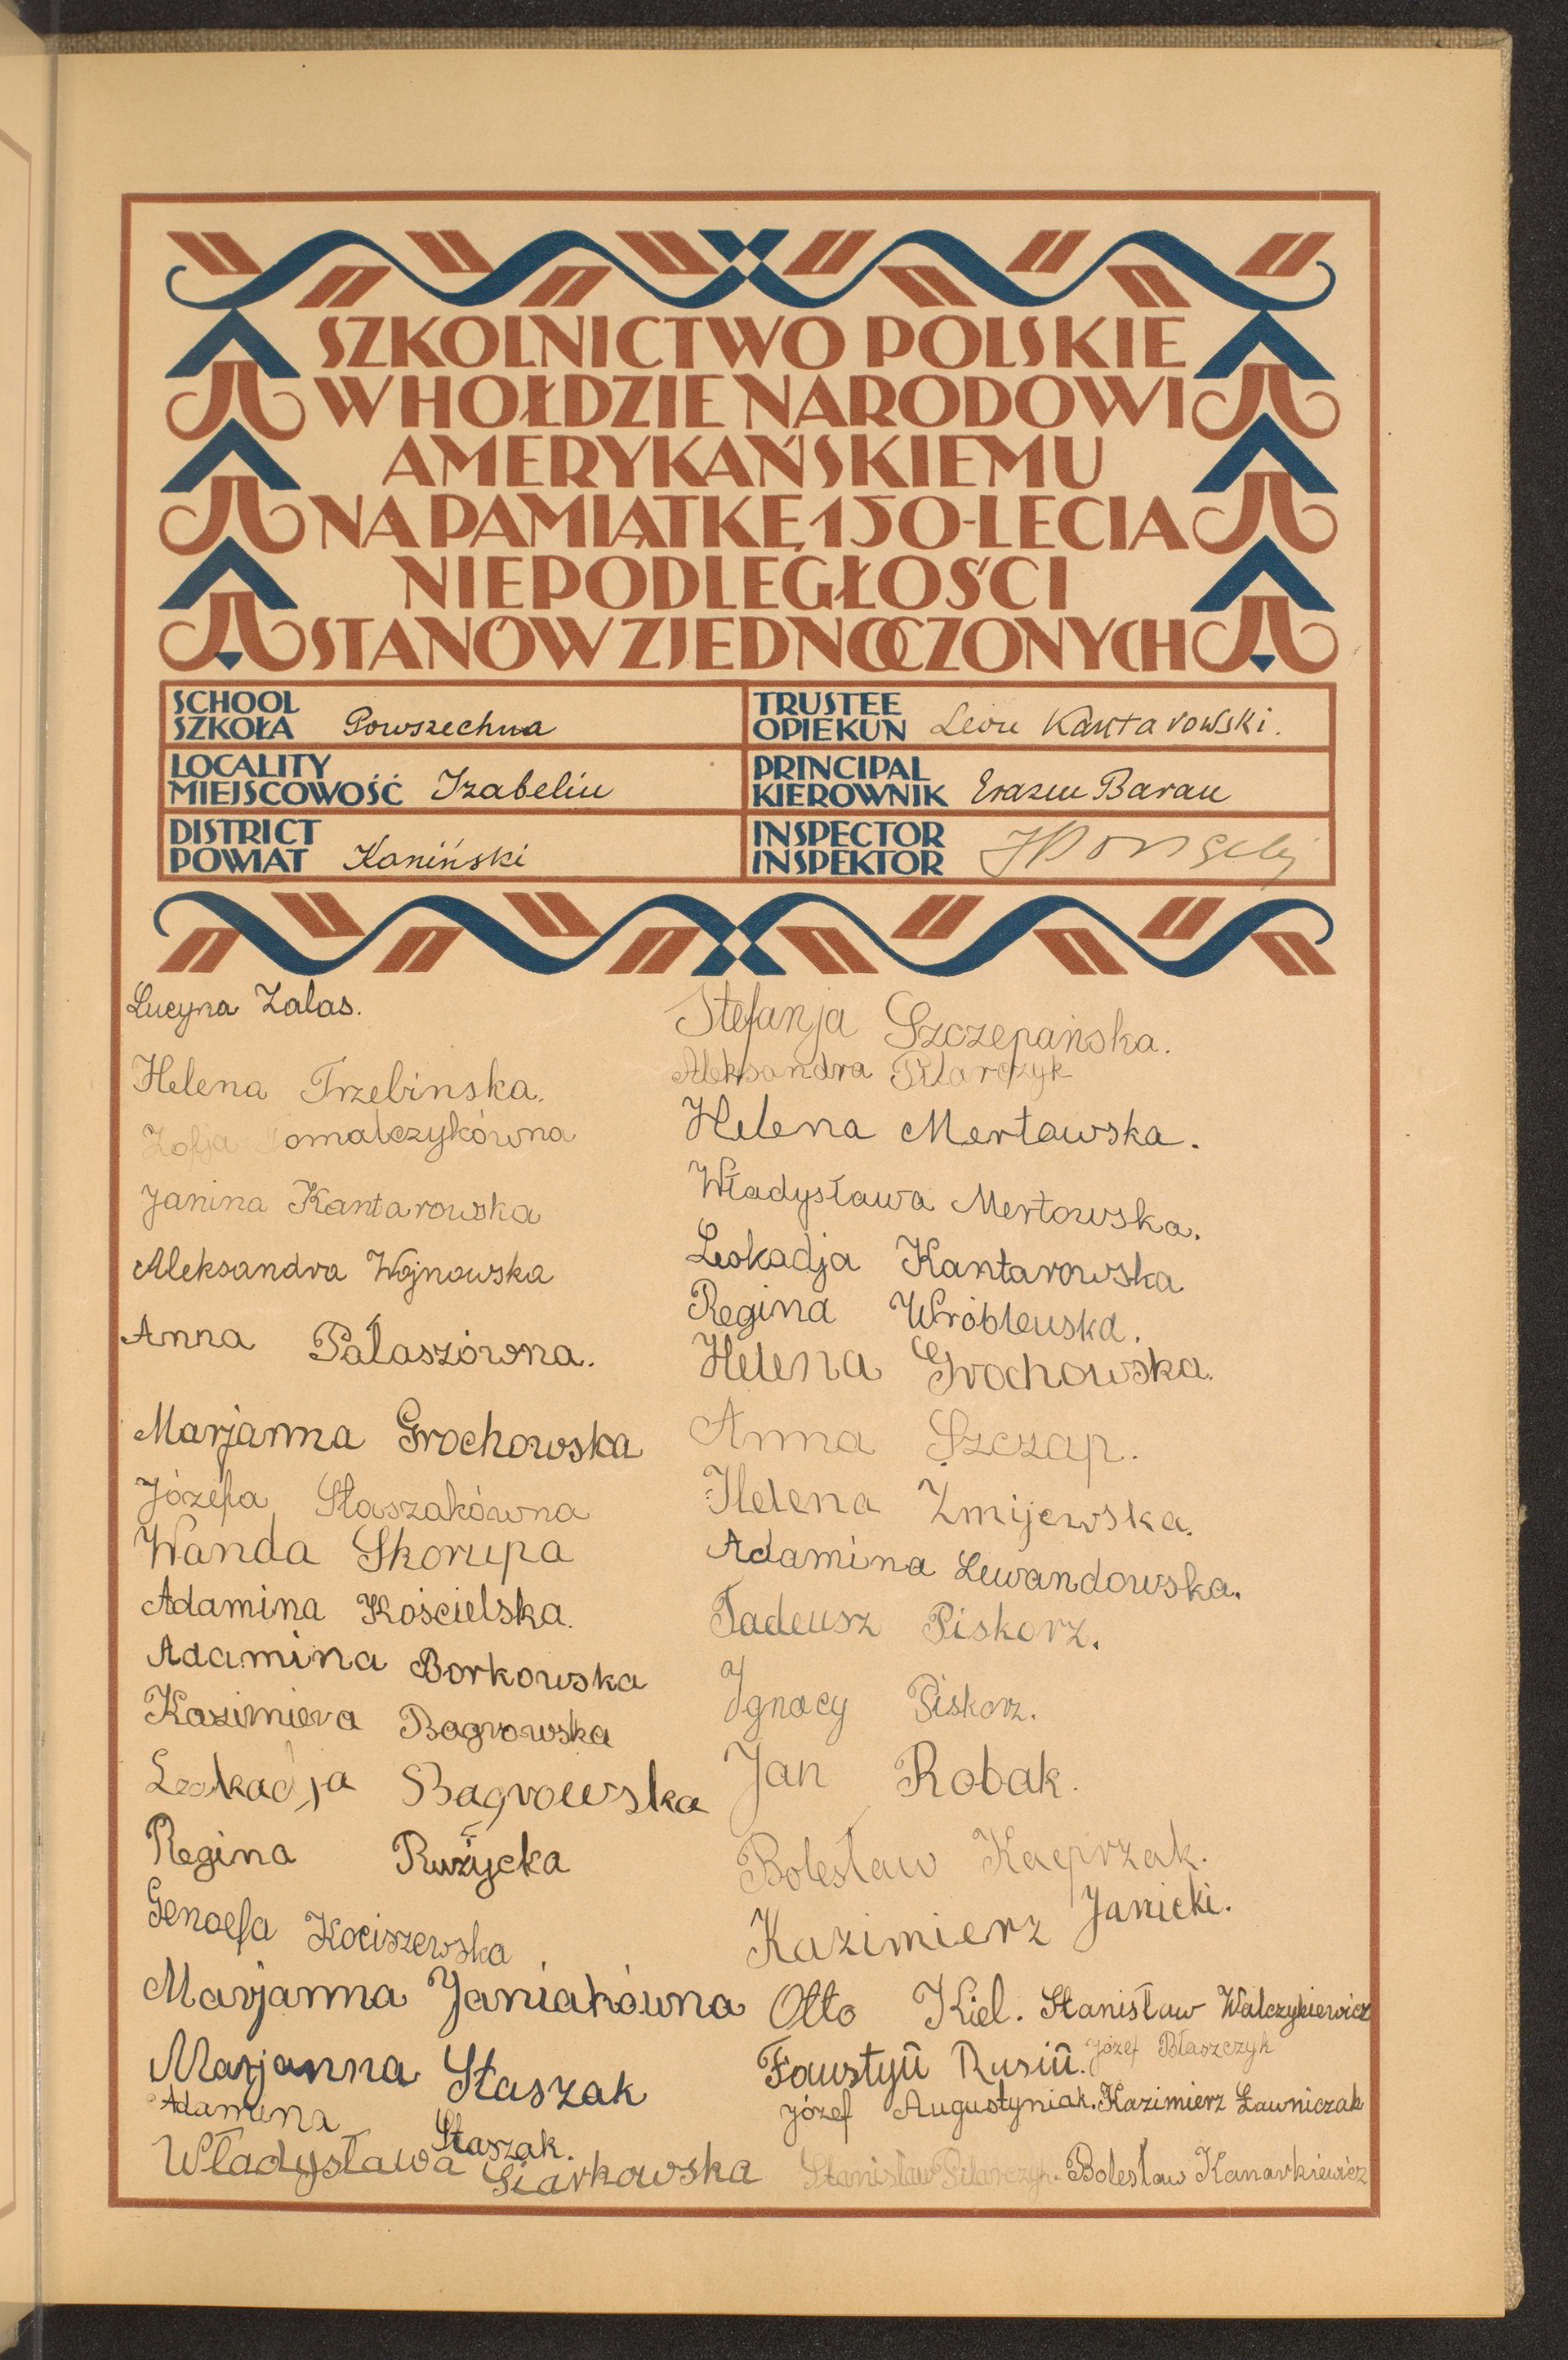 SZKOLNICTWO POLSKIE
W HOŁDZIE NARODOWI
AMERYKAŃSKIEMU
NA PAMIĄTKĘ 150-LECIA
NIEPODLEGŁOŚCI
STANÓW ZJEDNOCZONYCH
SCHOOL
SZKOŁA Powszechna
TRUSTEE
OPIEKUN Leon Kantarowski.
LOCALITY
MIEJSCOWOŚĆ Izabelin
PRINCIPAL
KIEROWNIK Erazm Baran
DISTRICT
POWIAT Koniński
INSPECTOR
INSPEKTOR
Lucyna Zalas.
Helena Trzebinska.
Zofja
Janina Kantarowska
Aleksandra Wojnowska
Anna Pałaszówna.
Marjanna Grochowska
Józefa Staszakówna
Wanda Skorupa
Adamina Kościelska.
Adamina Borkowska
Kazimiera Bagrowska
Leokadja Bagrowska
Regina Rużycka
Genoefa Kociszewska
Marjanna Janiakówna
Marjanna Staszak
Adamina Staszak.
Władysława Siarkowska
Stefanja Szczepańska.
Aleksandra Pilarczyk
Helena Mertowska.
Władysława Mertowska.
Leokadja Kantarowska
Regina Wróblewska.
Helena Grochowska.
Anna Szczap.
Helena Żmijewska.
Adamina Lewandowska.
Tadeusz Piskorz.
Ignacy Piskorz.
Jan Robak.
Bolesław Kacprzak.
Kazimierz Janicki.
Otto Kiel. Stanisław Walczykiewicz
Faustyn̄ Rusin̄. Józef Błaszczyk
Józef Augustyniak. Kazimierz Ławniczak
Stanisław Pilarczyk. Bolesław Kanarkiewicz